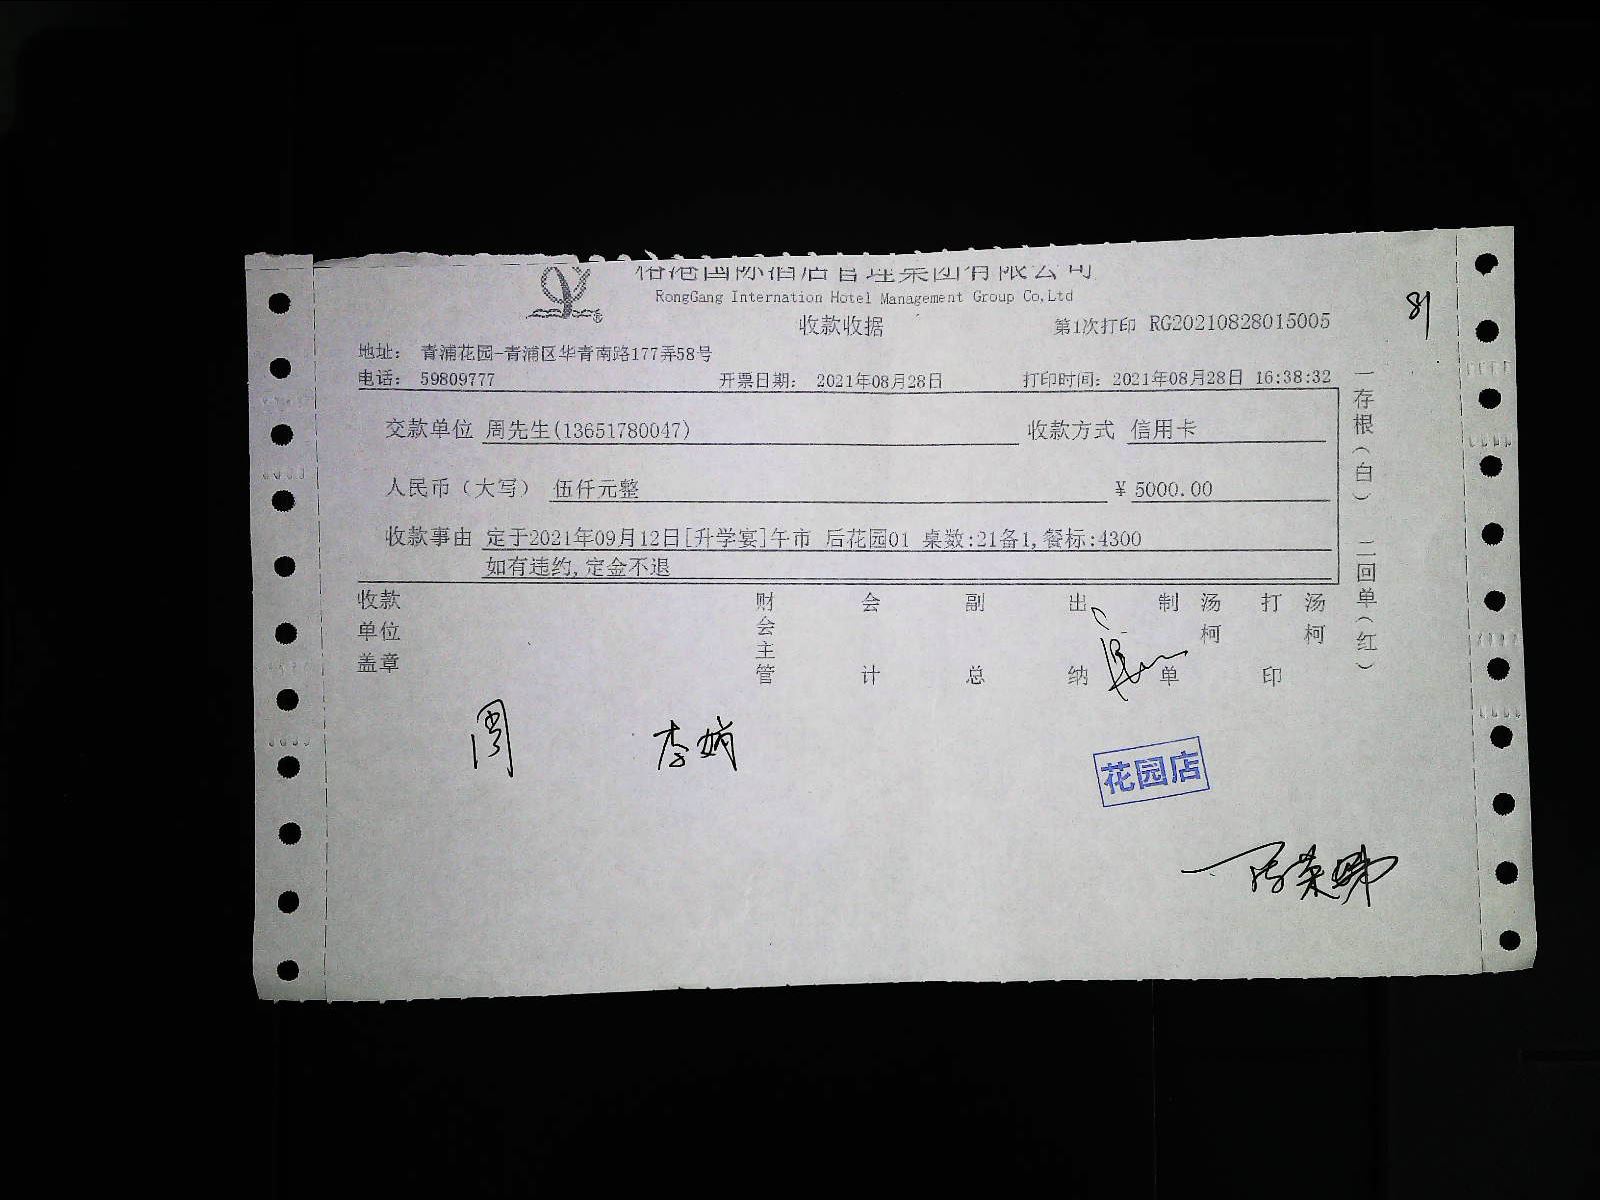 国际酒店管理集团有限公司
RongGang Internation Hotel Management Group Co,Ltd
收款收据
第1次打印 RG20210828015005
81
地址: 青浦花园-青浦区华青南路177弄58号
电话: 59809777 开票日期: 2021年08月28日 打印时间: 2021年08月28日 16:38:32
交款单位 周先生(13651780047) 收款方式 信用卡
人民币（大写） 伍仟元整 ¥ 5000.00
收款事由 定于2021年09月12日[升学宴]午市 后花园01 桌数:21备1,餐标:4300
如有违约,定金不退
一存根(白) 二回单(红)
收款单位盖章 财会主管 会计 副总 出纳 制单 汤柯 打印 汤柯
周 李娟
花园店